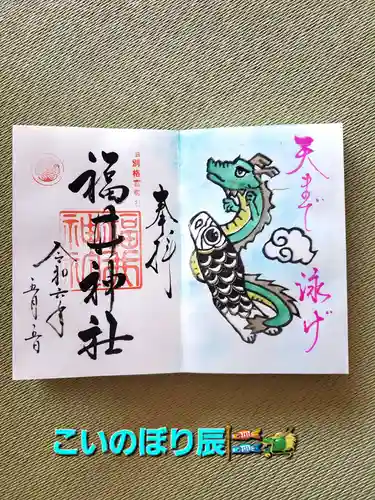 天まで泳げ
奉拝
別格官幣
福井神社
令和六年
五月五日
こいのぼり辰